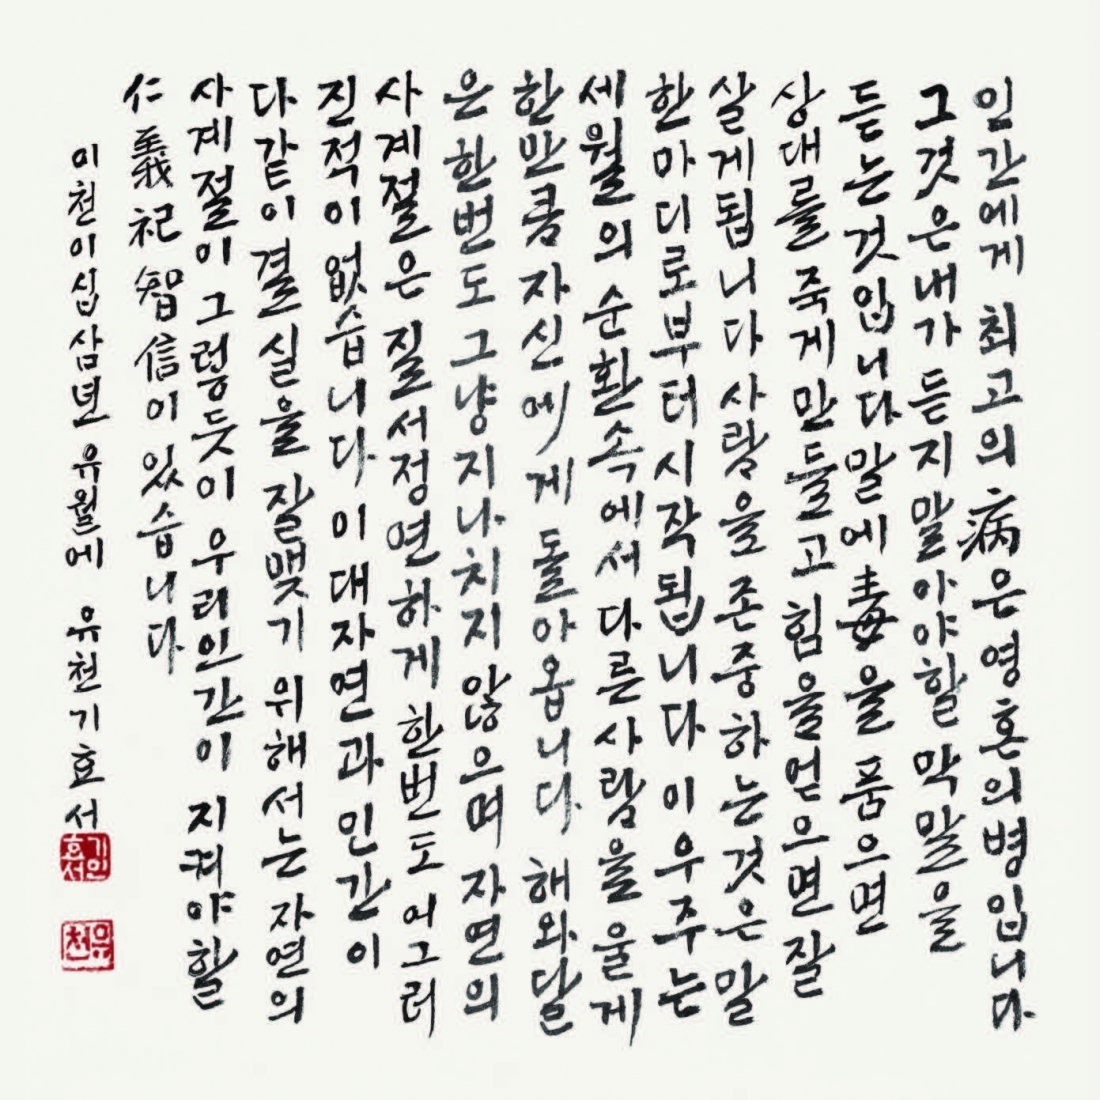 인간에게 최고의 病은 영혼의 병입니다
그것은 내가 듣지말아야할 막말을
듣는것입니다 말에 毒을 품으면
상대를 죽게만들고 힘을얻으면 잘
살게됩니다 사람을 존중하는것은 말
한마디로부터 시작됩니다 이우주는
세월의 순환속에서 다른사람을 울게
한만큼 자신에게 돌아옵니다 해와달
은 한번도 그냥지나치지 않으며 자연의
사계절은 질서정연하게 한번도 어그러
진적이없습니다 이대자연과 인간이
다같이 결실을 잘맺기 위해서는 자연의
사계절이 그렇듯이 우리인간이 지켜야할
仁義祀智信이 있습니다
이천이십삼년 유월에 유천기효서
기인효서
유천